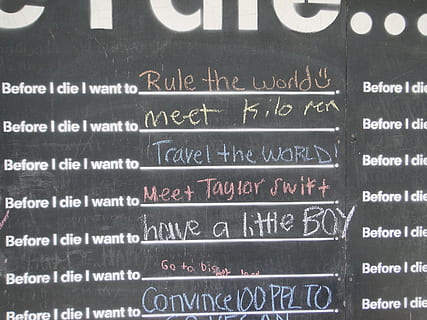 e I die...
Before I die I want to Rule the world
Before I die I want to meet Kilo ren
Before I die I want to Travel the WORLD!
Before I die I want to Meet Taylor Swift
Before I die I want to have a little BOY
Before I die I want to Go to
Before I die I want to Convince 100 PPL TO
GO VEGAN
Before I
Before I
Before I
Before I
Before I
Before I
Before I